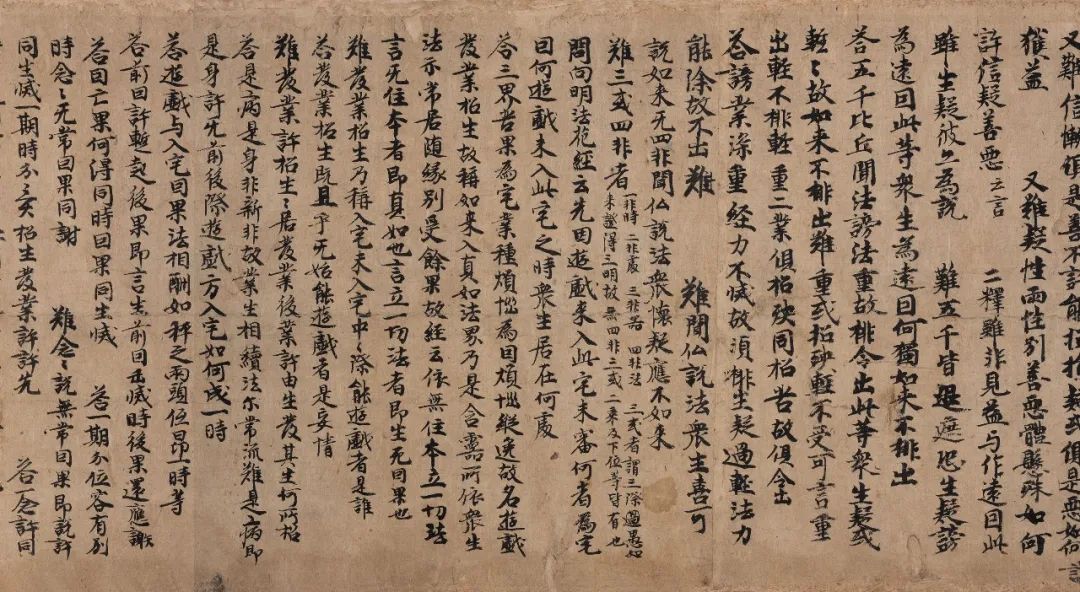 又難信懈
獲益　又難疑性兩性別善惡體懸殊如何
許信疑善惡 二釋難非見益与作遠因此
雖生疑彼 為說　難五千皆 遮恐生疑謗
為遠因此等衆生為遠因何獨如来不排出
答五千比丘聞法謗法重故排令出此等衆生疑或
輕々故如来不排出難重或招殃輕不受可言重
出輕不排輕重二業俱招殃同招苦故俱令出
答謗業深重経力不滅故須排生疑過輕法力
能除故不出難　難聞仏說法衆生喜可
說如来无四非聞仏說法衆懷疑應不如来
難三或四非者 一非時二非處三非器四非法三或者謂三際遇愚如来證得三明故無四非三或二乘及下位等皆有也
問向明法花經云先因遊戲来入此宅未審何者為宅
曰何遊戲未入此宅之時衆生居在何處
答三界苦果為宅業種煩惱為因煩惱縱逸故名遊戲
發業招生故稱如来入真如法界乃是含靈所依衆生
法示常居随緣別受餘果故經云依無住本立一切法
言无住本者即真如也言立一切法者即生死因果也
難發業招生乃稱入宅未入宅中際能遊戲者是誰
答發業招生既且乎无始能遊戲者是妄情
難發業許招生々居發業後業許由生發其生何所招
答是病是身非新非故業生相續法尔常流難是病即
是身許先前後際遊戲方入宅如何成一時
答遊戲与入宅因果法相酬如秤之兩頭低昂一時等
答前因許暫起後果即言生前因 滅時後果還應謝
答因亡果何得同時因果同生滅　答一期分位容有別
時念々无常因果同謝　難念々說無常因果即 許
同生滅一期時分 招生發業許許先　答念許同